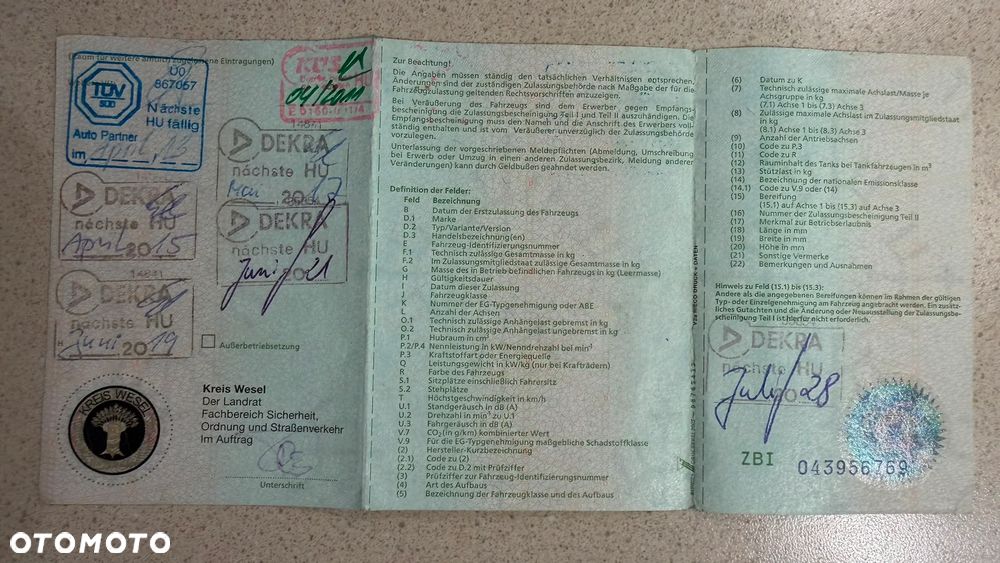 (Raum für weitere amtlich zugelassene Eintragungen)
ÜO
867067
TÜV
SÜD
Nächste
HU fällig
Auto Partner
im April 13
KÜS
HU
04/
14841
DEKRA
nächste HU
Mai 2017
DEKRA
nächste HU
April 2015
DEKRA
nächste HU
Juni 21
14841
DEKRA
nächste HU
Juni 2019
Außerbetriebsetzung
KREIS WESEL
Kreis Wesel
Der Landrat
Fachbereich Sicherheit,
Ordnung und Straßenverkehr
Im Auftrag
Unterschrift
Zur Beachtung!
Die Angaben müssen ständig den tatsächlichen Verhältnissen entsprechen.
Änderungen sind der zuständigen Zulassungsbehörde nach Maßgabe der für die
Fahrzeugzulassung geltenden Rechtsvorschriften anzuzeigen.
Bei Veräußerung des Fahrzeugs sind dem Erwerber gegen Empfangs-
bescheinigung die Zulassungsbescheinigung Teil I und Teil II auszuhändigen. Die
Empfangsbescheinigung muss den Namen und die Anschrift des Erwerbers voll-
ständig enthalten und ist vom Veräußerer unverzüglich der Zulassungsbehörde
vorzulegen.
Unterlassung der vorgeschriebenen Meldepflichten (Abmeldung, Umschreibung
bei Erwerb oder Umzug in einen anderen Zulassungsbezirk, Meldung anderer
Veränderungen) kann durch Geldbußen geahndet werden.
Definition der Felder:
Feld Bezeichnung
B Datum der Erstzulassung des Fahrzeugs
D.1 Marke
D.2 Typ/Variante/Version
D.3 Handelsbezeichnung(en)
E Fahrzeug-Identifizierungsnummer
F.1 Technisch zulässige Gesamtmasse in kg
F.2 Im Zulassungsmitgliedstaat zulässige Gesamtmasse in kg
G Masse des in Betrieb befindlichen Fahrzeugs in kg (Leermasse)
H Gültigkeitsdauer
I Datum dieser Zulassung
J Fahrzeugklasse
K Nummer der EG-Typgenehmigung oder ABE
L Anzahl der Achsen
O.1 Technisch zulässige Anhängelast gebremst in kg
O.2 Technisch zulässige Anhängelast ungebremst in kg
P.1 Hubraum in cm³
P.2/P.4 Nennleistung in kW/Nenndrehzahl bei min⁻¹
P.3 Kraftstoffart oder Energiequelle
Q Leistungsgewicht in kW/kg (nur bei Krafträdern)
R Farbe des Fahrzeugs
S.1 Sitzplätze einschließlich Fahrersitz
S.2 Stehplätze
T Höchstgeschwindigkeit in km/h
U.1 Standgeräusch in dB (A)
U.2 Drehzahl in min⁻¹ zu U.1
U.3 Fahrgeräusch in dB (A)
V.7 CO₂ (in g/km) kombinierter Wert
V.9 Für die EG-Typgenehmigung maßgebliche Schadstoffklasse
(2) Hersteller-Kurzbezeichnung
(2.1) Code zu (2)
(2.2) Code zu D.2 mit Prüfziffer
(3) Prüfziffer zur Fahrzeug-Identifizierungsnummer
(4) Art des Aufbaus
(5) Bezeichnung der Fahrzeugklasse und des Aufbaus
(6) Datum zu K
(7) Technisch zulässige maximale Achslast/Masse je
Achsgruppe in kg
(7.1) Achse 1 bis (7.3) Achse 3
(8) Zulässige maximale Achslast im Zulassungsmitgliedstaat
in kg
(8.1) Achse 1 bis (8.3) Achse 3
(9) Anzahl der Antriebsachsen
(10) Code zu P.3
(11) Code zu R
(12) Rauminhalt des Tanks bei Tankfahrzeugen in m³
(13) Stützlast in kg
(14) Bezeichnung der nationalen Emissionsklasse
(14.1) Code zu V.9 oder (14)
(15) Bereifung
(15.1) auf Achse 1 bis (15.3) auf Achse 3
(16) Nummer der Zulassungsbescheinigung Teil II
(17) Merkmal zur Betriebserlaubnis
(18) Länge in mm
(19) Breite in mm
(20) Höhe in mm
(21) Sonstige Vermerke
(22) Bemerkungen und Ausnahmen
Hinweis zu Feld (15.1) bis (15.3):
Andere als die angegebenen Bereifungen können im Rahmen der gültigen
Typ- oder Einzelgenehmigung am Fahrzeug angebracht werden. Ein zusätz-
liches Gutachten und die Änderung oder Neuausstellung der Zulassungsbe-
scheinigung Teil I ist hierfür nicht erforderlich.
DEKRA
nächste HU
July 28
ZBI 043956769
OTOMOTO